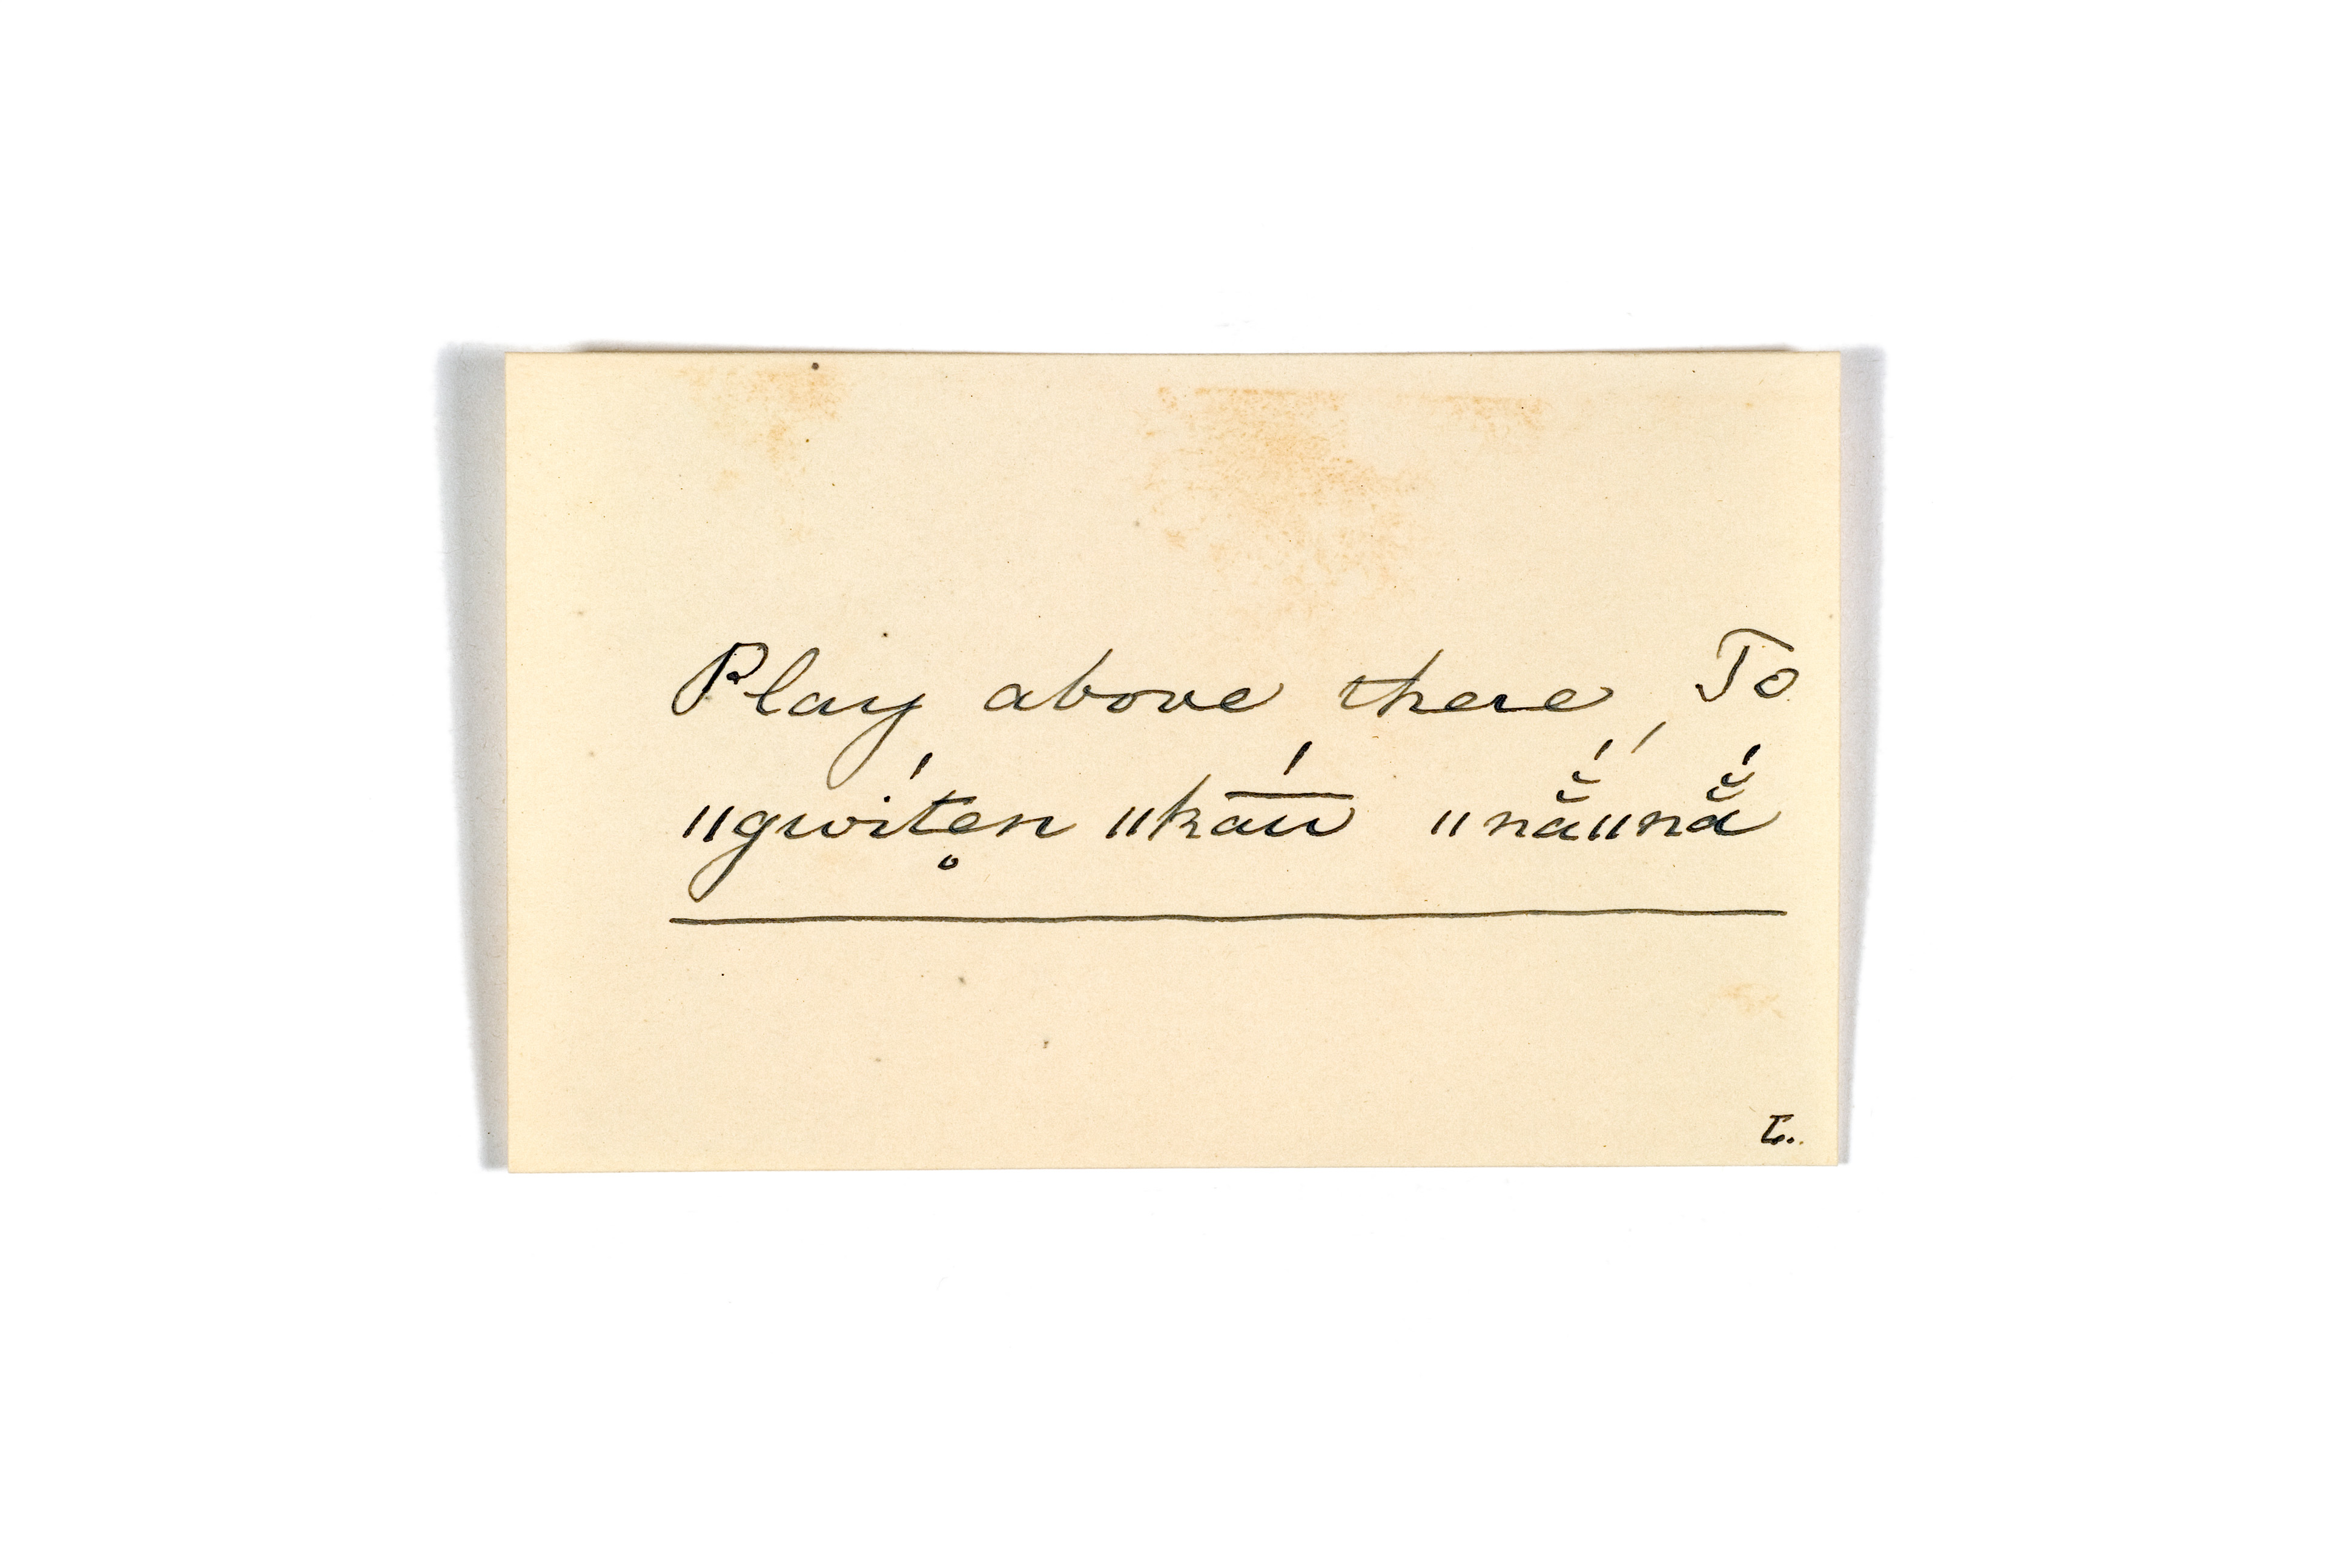 Play above there, To
"gwíte̥n "ka͞ú "nă̆́"nă̆́
L.